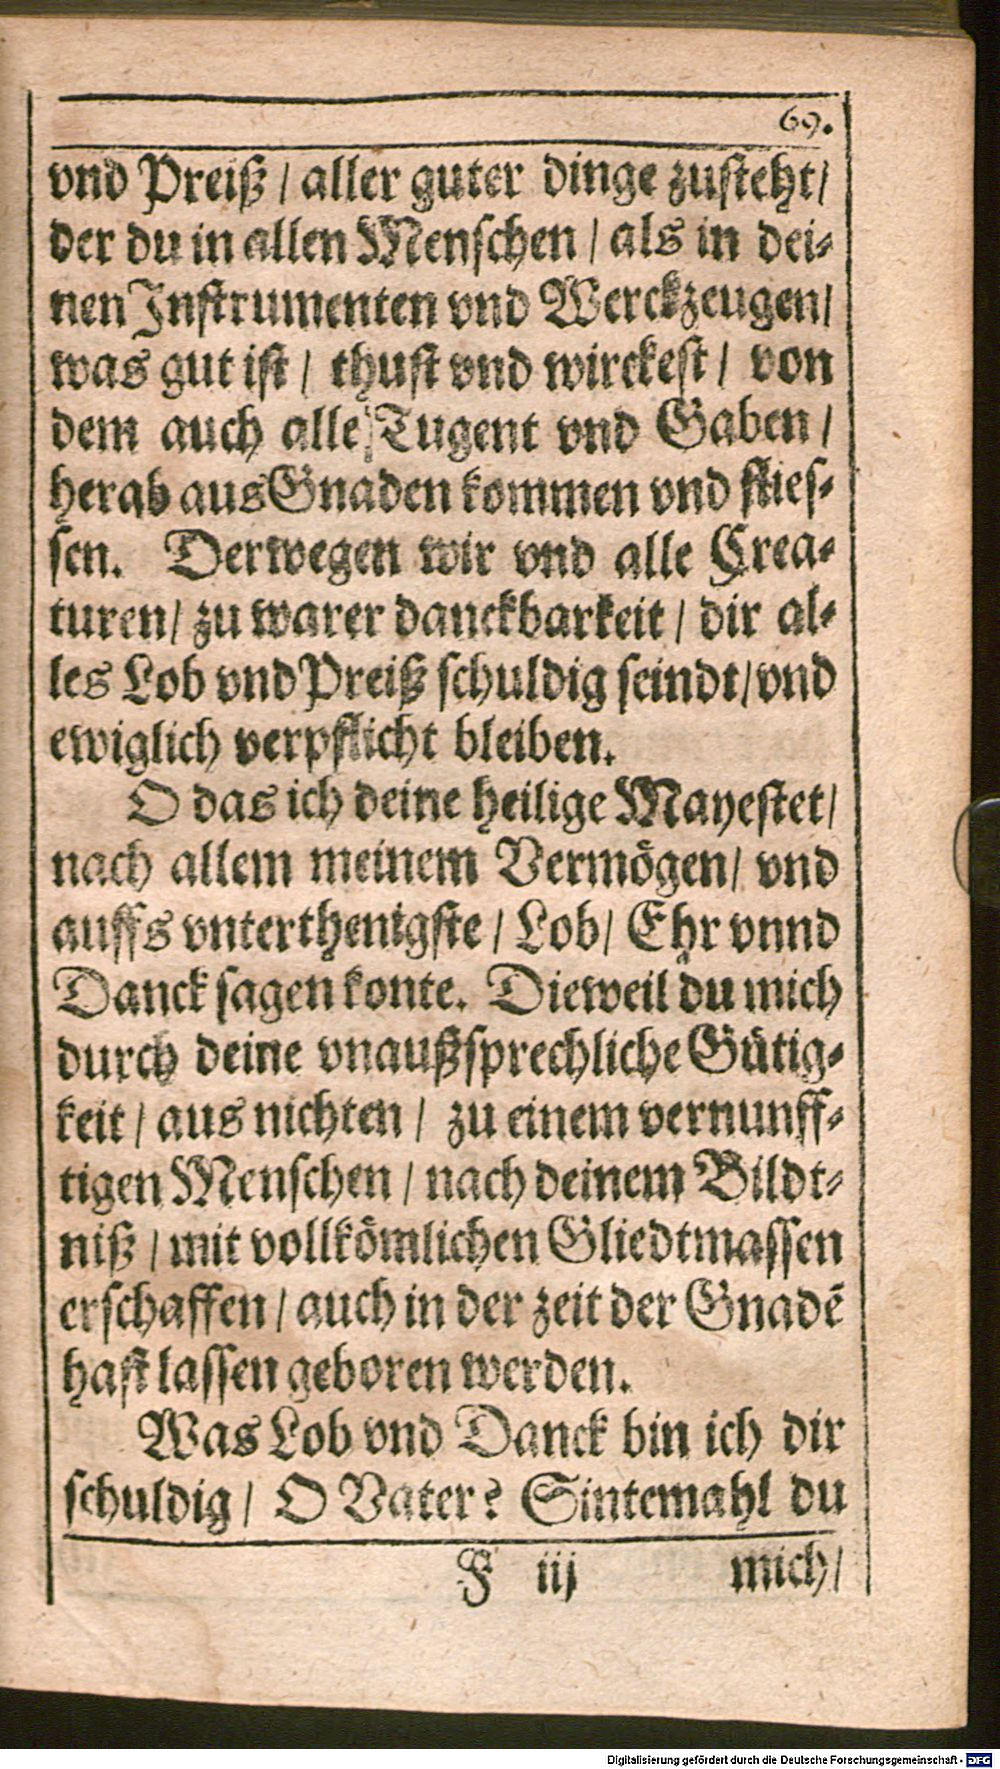 69.
vnd Preiß / aller guter dinge zusteht/
der du in allen Menschen / als in dei-
nen Instrumenten vnd Werckzeugen/
was gut ist / thust vnd wirckest / von
dem auch alle Tugent vnd Gaben /
herab aus Gnaden kommen vnd flies-
sen. Derwegen wir vnd alle Crea-
turen/ zu warer danckbarkeit / dir al-
les Lob vnd Preiß schuldig seindt/vnd
ewiglich verpflicht bleiben.
O das ich deine heilige Mayestet/
nach allem meinem Vermögen/ vnd
auffs vnterthenigste / Lob/ Ehr vnnd
Danck sagen konte. Dieweil du mich
durch deine vnaußsprechliche Gütig-
keit / aus nichten / zu einem vernunff-
tigen Menschen / nach deinem Bildt-
niß / mit vollkömlichen Gliedtmassen
erschaffen / auch in der zeit der Gnadē
hast lassen geboren werden.
Was Lob vnd Danck bin ich dir
schuldig / O Vater? Sintemahl du
F iij mich/
Digitalisierung gefördert durch die Deutsche Forschungsgemeinschaft - DFG